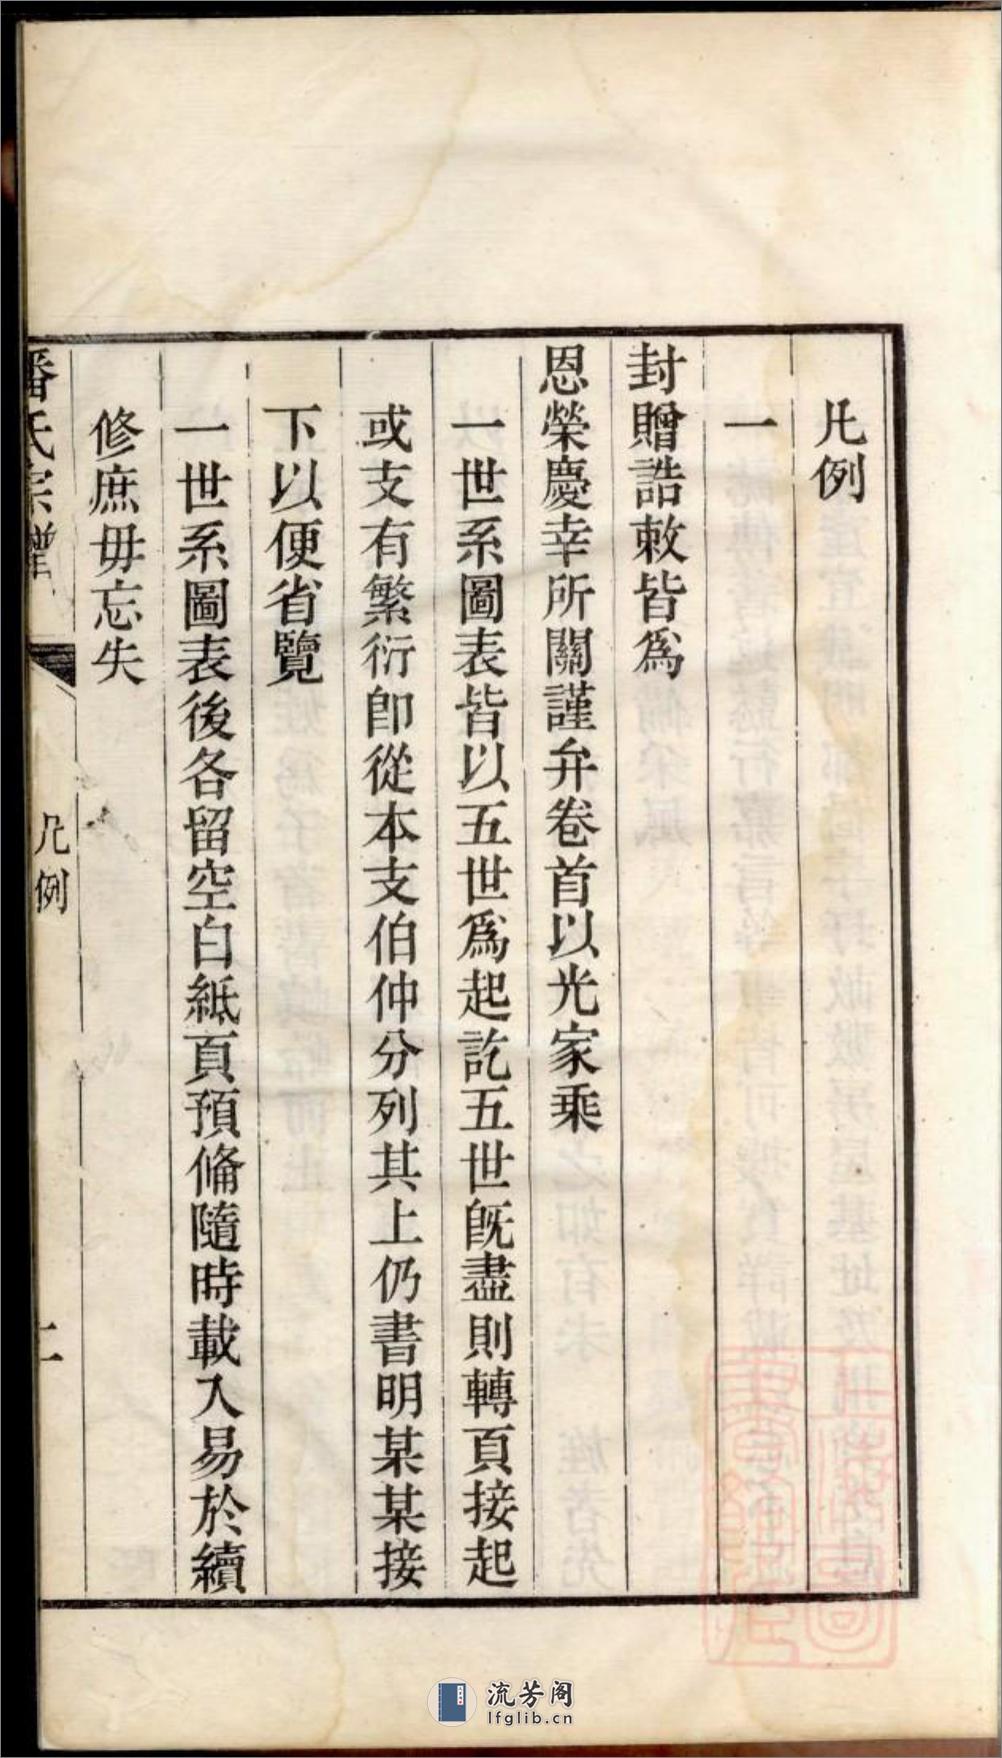 凡例
一
封贈誥敕皆爲
恩榮慶幸所關謹弁卷首以光家乘
一世系圖表皆以五世爲起訖五世既盡則轉頁接起
或支有繁衍即從本支伯仲分列其上仍書明某某接
下以便省覽
一世系圖表後各留空白紙頁預俻隨時載入易於續
修庶毋忘失
潘氏宗譜
凡例
流芳阁
lfglib.cn